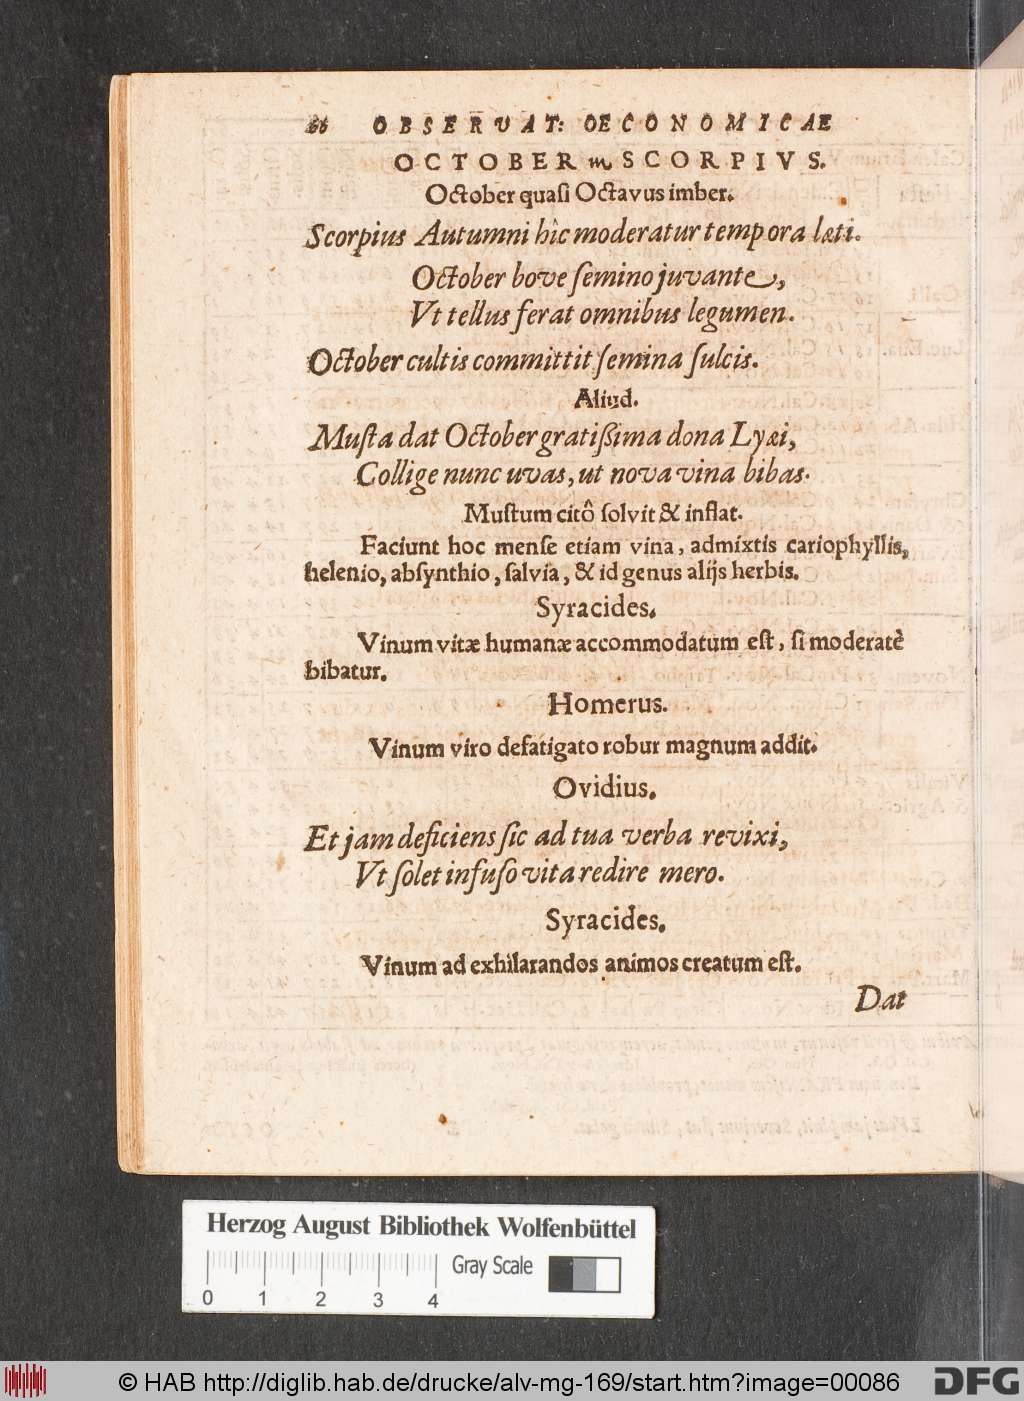 66 OBSERVAT: OECONOMICAE
OCTOBER ♏ SCORPIVS.
October quaſi Octavus imber.
Scorpius Autumni hîc moderatur tempora læti.
October bove ſemino juvante,
Vt tellus ferat omnibus legumen.
October cultis committit ſemina ſulcis.
Aliud.
Muſta dat October gratiſsima dona Lyæi,
Collige nunc uvas, ut nova vina bibas.
Muſtum citô ſolvit & inflat.
Faciunt hoc menſe etiam vina, admixtis cariophyllis,
helenio, abſynthio, ſalvia, & id genus alijs herbis.
Syracides.
Vinum vitæ humanæ accommodatum eſt, ſi moderatè
bibatur.
Homerus.
Vinum viro defatigato robur magnum addit.
Ovidius.
Et jam deficiens ſic ad tua verba revixi,
Vt ſolet infuſo vita redire mero.
Syracides.
Vinum ad exhilarandos animos creatum eſt.
Dat
Herzog August Bibliothek Wolfenbüttel
Gray Scale
0 1 2 3 4
© HAB http://diglib.hab.de/drucke/alv-mg-169/start.htm?image=00086
DFG